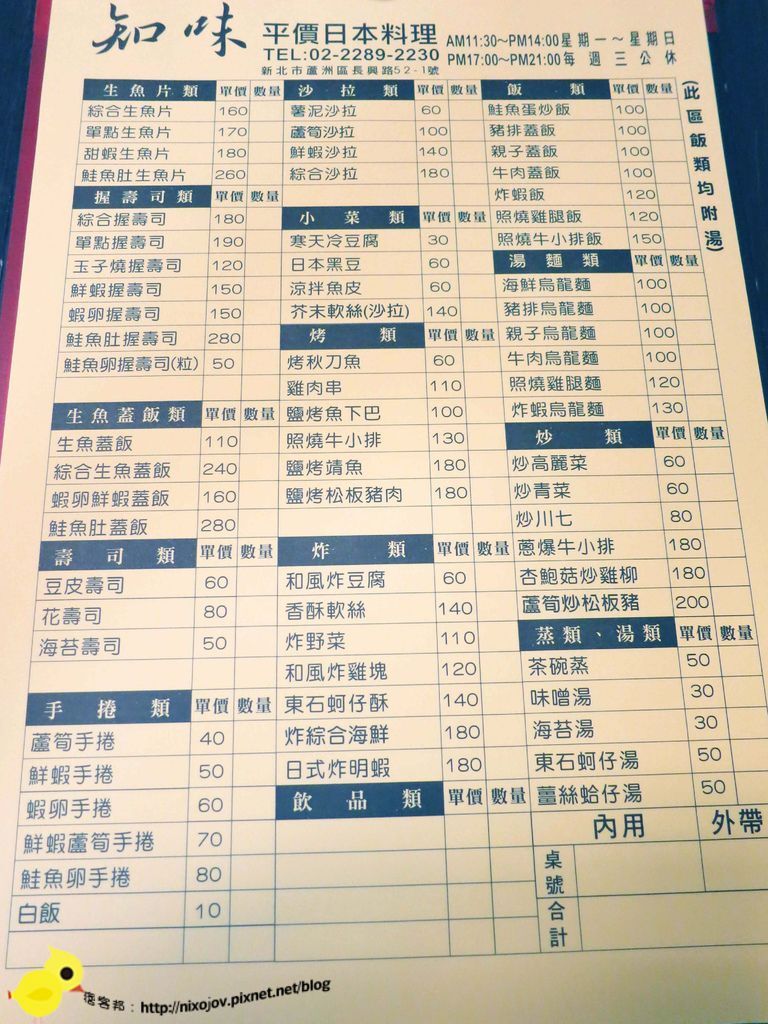 知味 平價日本料理 AM11:30~PM14:00星期一~星期日
TEL:02-2289-2230 PM17:00~PM21:00每週三公休
新北市蘆洲區長興路52-1號
(此區飯類均附湯)
生魚片類 單價 數量
綜合生魚片 160
單點生魚片 170
甜蝦生魚片 180
鮭魚肚生魚片 260
握壽司類 單價 數量
綜合握壽司 180
單點握壽司 190
玉子燒握壽司 120
鮮蝦握壽司 150
蝦卵握壽司 150
鮭魚肚握壽司 280
鮭魚卵握壽司(粒) 50
生魚蓋飯類 單價 數量
生魚蓋飯 110
綜合生魚蓋飯 240
蝦卵鮮蝦蓋飯 160
鮭魚肚蓋飯 280
壽司類 單價 數量
豆皮壽司 60
花壽司 80
海苔壽司 50
手捲類 單價 數量
蘆筍手捲 40
鮮蝦手捲 50
蝦卵手捲 60
鮮蝦蘆筍手捲 70
鮭魚卵手捲 80
白飯 10
沙拉類 單價 數量
薯泥沙拉 60
蘆筍沙拉 100
鮮蝦沙拉 140
綜合沙拉 180
小菜類 單價 數量
寒天冷豆腐 30
日本黑豆 60
涼拌魚皮 60
芥末軟絲(沙拉) 140
烤類 單價 數量
烤秋刀魚 60
雞肉串 110
鹽烤魚下巴 100
照燒牛小排 130
鹽烤鯖魚 180
鹽烤松板豬肉 180
炸類 單價 數量
和風炸豆腐 60
香酥軟絲 140
炸野菜 110
和風炸雞塊 120
東石蚵仔酥 140
炸綜合海鮮 180
日式炸明蝦 180
飲品類 單價 數量
飯類 單價 數量
鮭魚蛋炒飯 100
豬排蓋飯 100
親子蓋飯 100
牛肉蓋飯 100
炸蝦飯 120
照燒雞腿飯 120
照燒牛小排飯 150
湯麵類 單價 數量
海鮮烏龍麵 100
豬排烏龍麵 100
親子烏龍麵 100
牛肉烏龍麵 100
照燒雞腿麵 120
炸蝦烏龍麵 130
炒類 單價 數量
炒高麗菜 60
炒青菜 60
炒川七 80
蔥爆牛小排 180
杏鮑菇炒雞柳 180
蘆筍炒松板豬 200
蒸類、湯類 單價 數量
茶碗蒸 50
味噌湯 30
海苔湯 30
東石蚵仔湯 50
薑絲蛤仔湯 50
內用 外帶
桌號
合計
痞客邦：http://nixojov.pixnet.net/blog